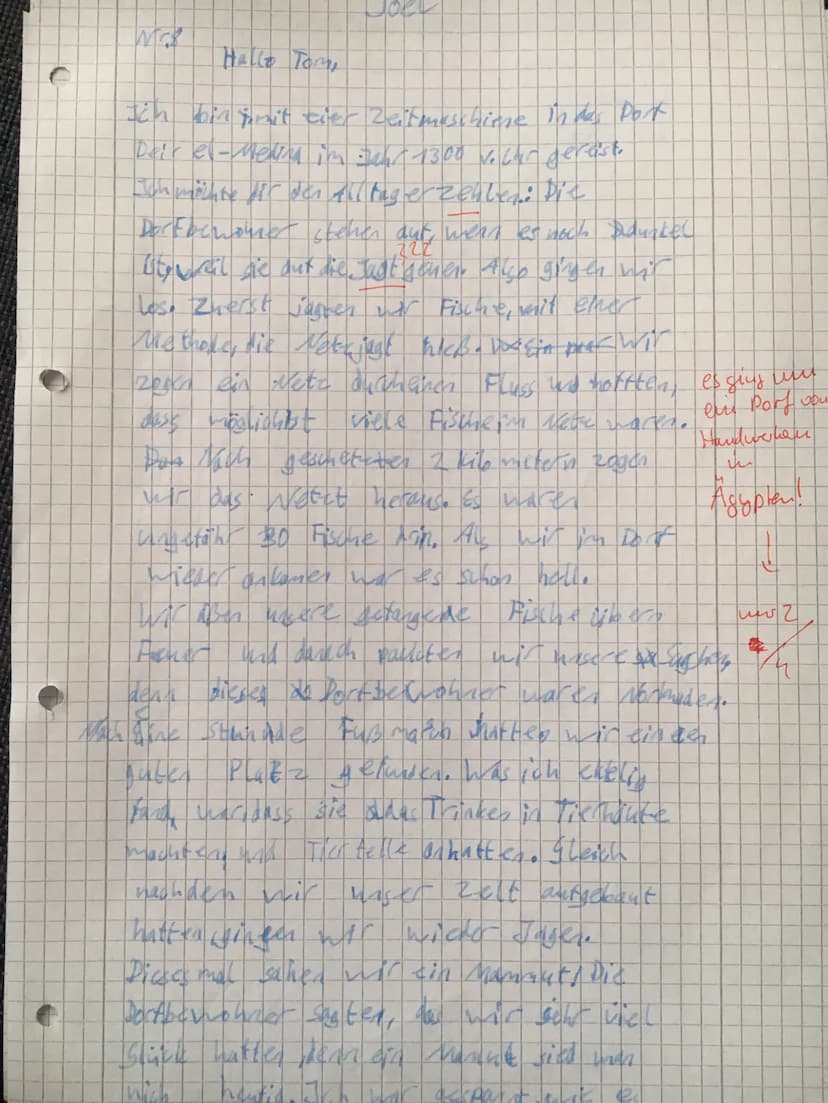 Joel
Nr.8
Hallo Tom,
Ich bin mit eier Zeitmaschiene in das Dorf
Deir el-Medina im Jahr 1300 v. Chr gereist.
Ich möchte dir den Alltag erzehlen: Die
Dorfbewohner stehen auf, wenn es noch Dunkel
ist, weil sie auf die Jagt gehen. Also gingen wir
???
los. Zuerst jagten wir Fische, mit einer
Methode, die Netzjagt hieß. Wir
zogen ein Netz durch einen Fluss und hofften,
dass möglichst viele Fische im Netz waren.
Nach geschetzten 2 kilometern zogen
wir das Netzt heraus. Es waren
ungefähr 30 Fische drin. Als wir im Dorf
wieder ankamen war es schon hell.
Wir aßen unsere gefangende Fische übern
Feuer und danach packten wir unsere Sachen,
denn dieses Dorfbewohner waren Normaden.
Nach Eine Stunde Fußmarch hatten wir einen
guten Platz gefunden. Was ich eklig
fand, war, dass sie das Trinken in Tierhäute
machten, und Tierfelle anhatten. Gleich
nachden wir unser Zelt aufgebaut
hatten, gingen wir wieder Jagen.
Dieses mal sahen wir ein Mammut! Die
Dorfbewohner sagten, das wir sehr viel
Glück hatten, denn ein Mamut sied man
nich heufig. Ich war
es ging um
ein Dorf von
Handwerkern
in
Ägypten!